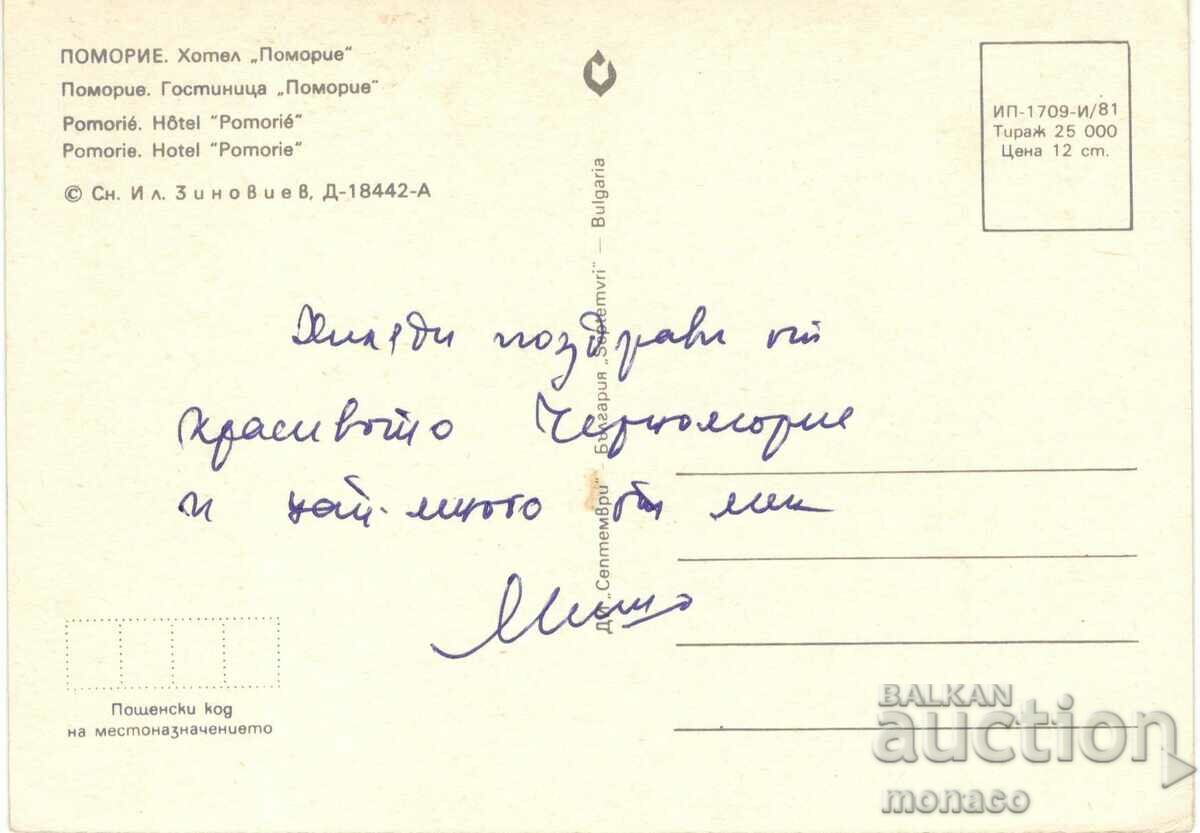 ПОМОРИЕ. Хотел „Поморие"
Поморие. Гостиница „Поморие"
Pomorié. Hôtel "Pomorié"
Pomorie. Hotel "Pomorie"
© Сн. Ил. Зиновиев, Д-18442-А
ИП-1709-И/81
Тираж 25 000
Цена 12 ст.
ДП „Септември" — България „Septemvri" — Bulgaria
Хиляди поздрави от
красивото Черноморие
и най-много от мен
Мишо
Пощенски код
на местоназначението
BALKAN
auction
monaco